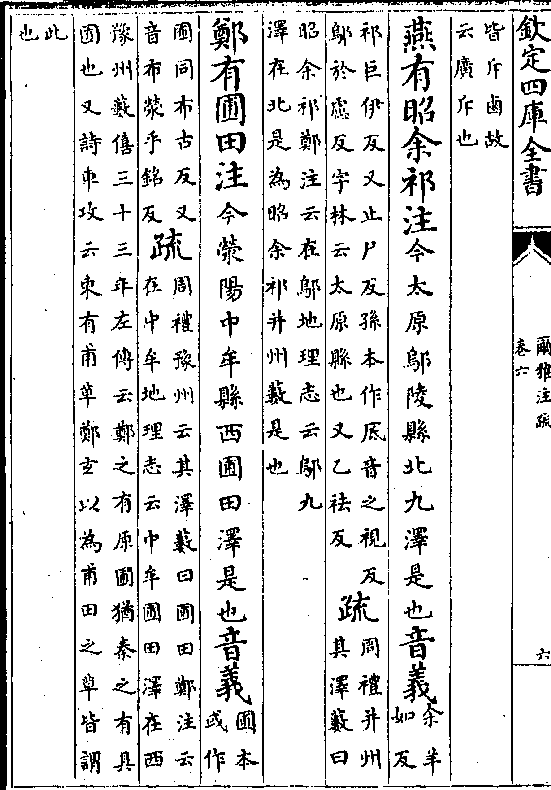 欽定四庫全書
爾雅注疏
卷六
六
皆斥鹵故
云廣斥也
燕有昭余祁注今太原鄔陵縣北九澤是也音義余羊
如反
祁巨伊反又止尸反孫本作厎音之視反
鄔於慮反字林云太原縣也又乙祛反
疏周禮并州
其澤藪曰
昭余祁鄭注云在鄔地理志云鄔九
澤在北是為昭余祁并州藪是也
鄭有圃田注今滎陽中牟縣西圃田澤是也音義圃本
或作
囿同布古反又
音布滎乎銘反
疏周禮豫州云其澤藪曰圃田鄭注云
在中牟地理志云中牟圃田澤在西
豫州藪僖三十三年左傳云鄭之有原圃猶秦之有具
囿也又詩車攻云東有甫草鄭玄以為甫田之草皆謂
此
也